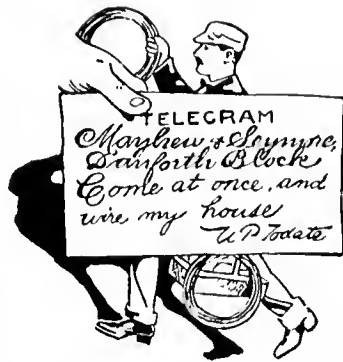 TELEGRAM
Mayhew & Scynmc,
Danforth Block
Come at once, and
wire my house
U P Todate